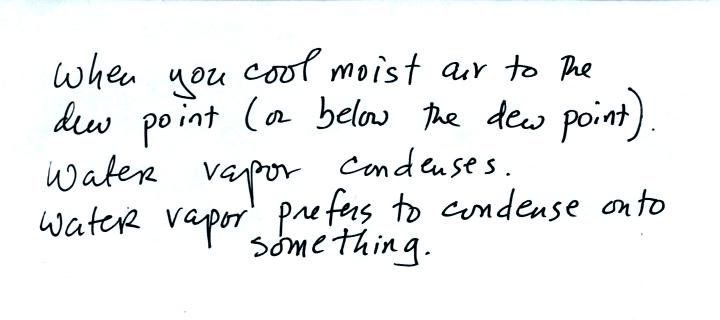 When you cool moist air to the
dew point (or below the dew point).
Water vapor condenses.
Water vapor prefers to condense onto
something.